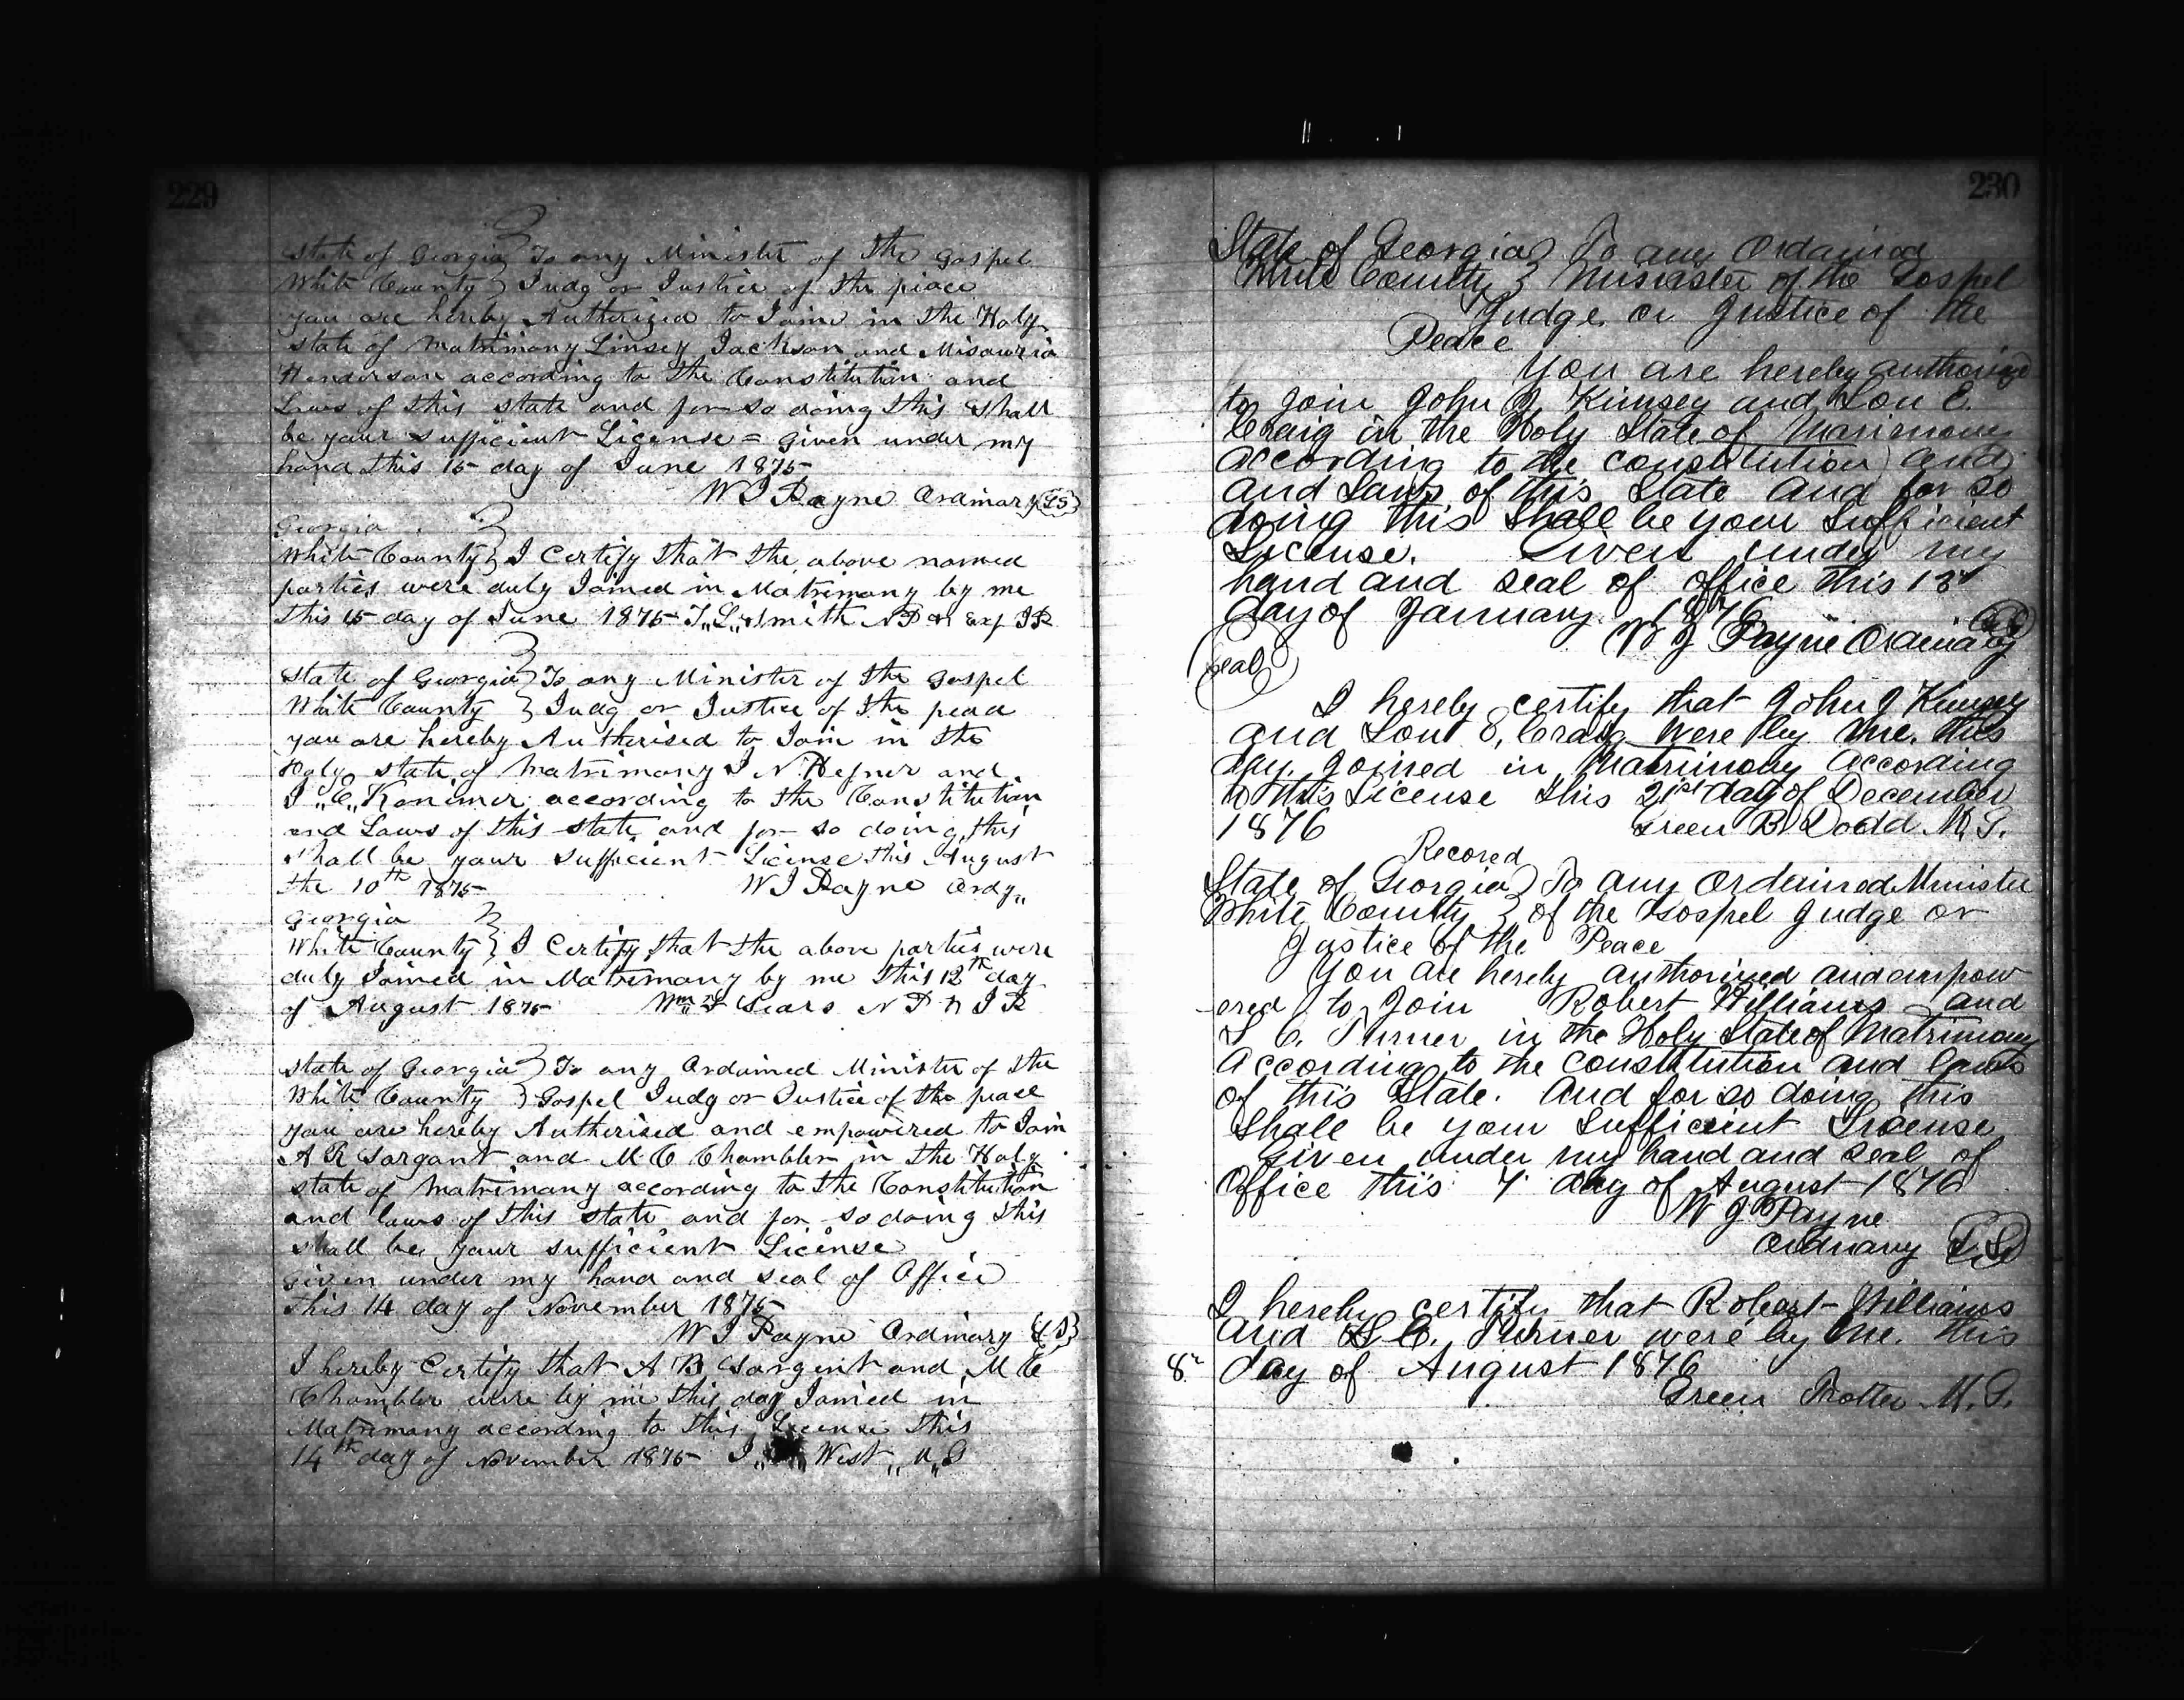 229
State of Georgia } To any Minister of the Gospel
White County } Judg or Justice of the piace
you are hereby Autherised to Joine in the Holy
state of Matrimony Linsey Jackson and Misouria
Henderson according to the Constitution and
Laws of this state and for so doing this shall
be your sufficient License = given under my
hand this 15 day of June 1875
W J Payne Ordinary {LS}
Georgia }
White County } I Certify that the above named
parties were duly Joined in Matrimony by me
this 15 day of June 1875 T,,L,,Smith N P & Exf J P
State of Georgia } To any Minister of the Gospel
White County } Judg or Justice of the peac
you are hereby Autherised to Join in the
Holy state of Matrimony J N Hefner and
J,,C,,Kanimer according to the Constitution
and Laws of this state and for so doing this
shall be your sufficient License this August
the 10th 1875 W J Payne Ordy,,
Georgia }
White County } I Certify that the above parties were
duly Joined in Matrimony by me this 12th day
of August 1875 Wm F Sears N P & J P
State of Georgia } To any Ordained Minister of the
White County } Gospel Judg or Justice of the peace
you are hereby Autherised and empowered to Join
A R Sargant and M C Chambler in the Holy
state of Matrimony according to the Constitution
and laws of this state and for so doing this
shall be your sufficient License
given under my hand and seal of Office
this 14 day of November 1875
W J Payne Ordinary {LS}
I hereby Certify that A B Sargent and M C
Chambler were by me this day Joined in
Matrimony according to this License this
14th day of November 1875 J,, West,, M,,G
230
State of Georgia } To any Ordained
White County } Minister of the Gospel
Judge or Justice of the
Peace
You are hereby authorized
to join John J Kimsey and Lou E.
Craig in the Holy State of Marimony
according to the constitution and
and Laws of this State and for so
doing this Shall be your Sufficient
License. Given under my
hand and seal of office this 13th
day of January 1876
W J Payne Ordinary LS
(Seal)
I hereby certify that John J Kimsey
and Lou E. Craig were by me. this
day. joined in Matrimony According
to this License this 21st day of December
1876 Green B Dodd M.G.
Recored
State of Georgia } To any Ordained Minister
White County } of the Gospel Judge or
Justice of the Peace
You are hereby authorized and empow
-ered to Join Robert Williams and
S C. Turner in the Holy State of Matrimony
According to the constitution and laws
of this State. And for so doing this
Shall be your Sufficient License
Given under my hand and seal of
Office this 7 day of August 1876
W J Payne
Ordinary LS
I hereby certify that Robert Williams
and S C. Turner were by me. this
8th day of August 1876
Green Trotter M.G.